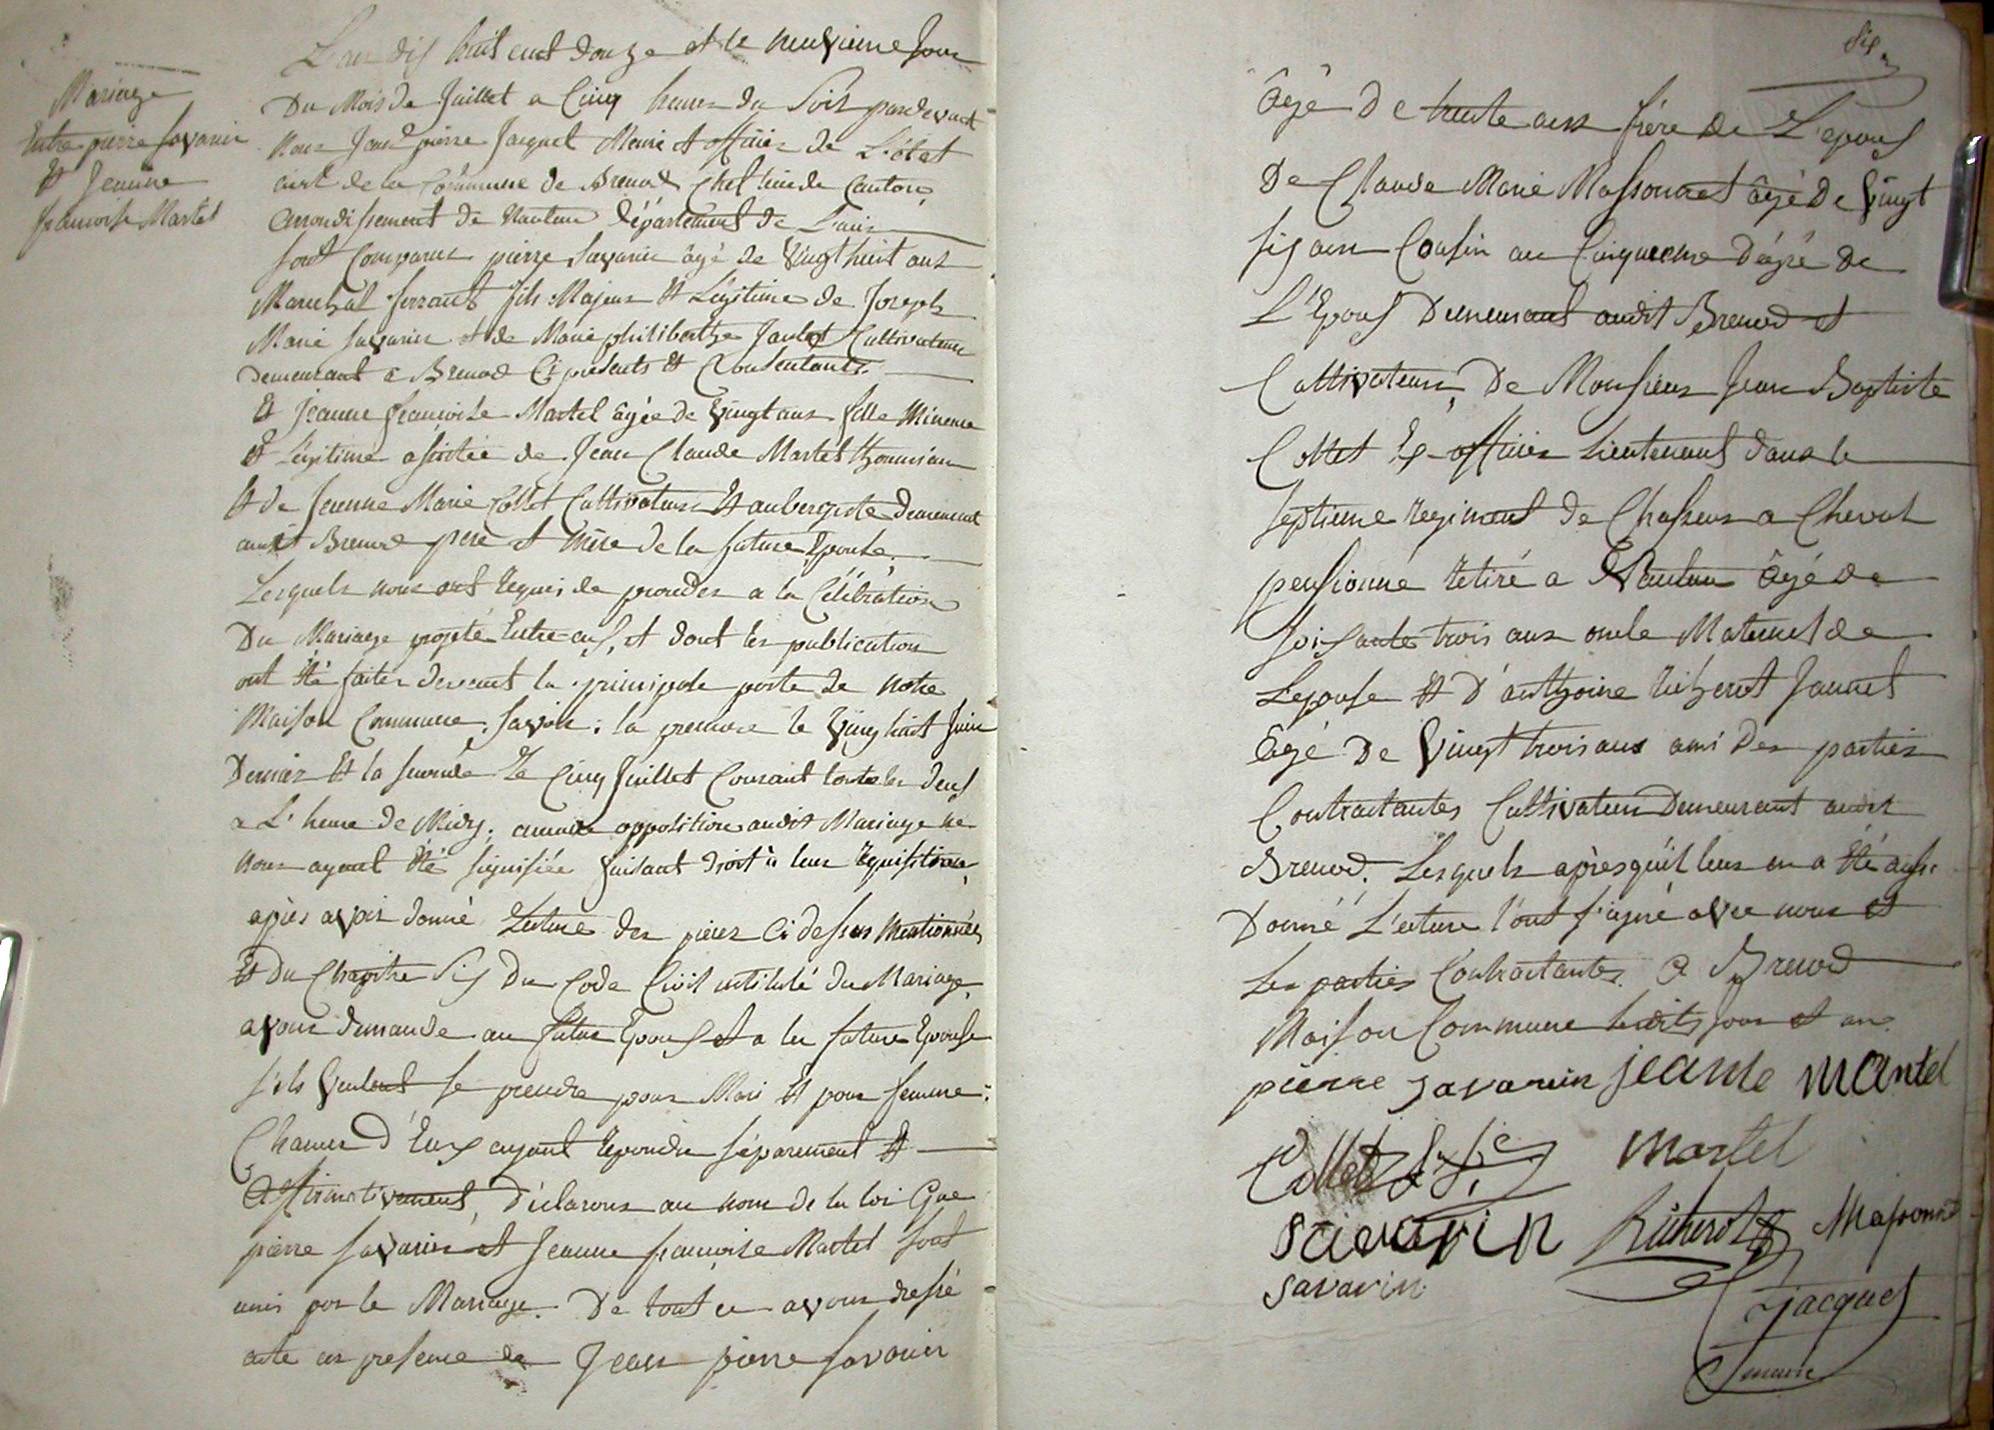 Mariage
Entre pierre Savarin
Et Jeanne
francoise Martel
L'an dix huit cent douze et le neuvieme Jour
Du Mois de Juillet a Cinq heures du Soir pardevant
Nous Jean pierre Jacquet Maire et officier de L'état
civil de la Commune de Brenod Chef lieu de Canton,
arrondissement de Nantua Département de L'ain
sont Comparus pierre Savarin âgé de Vingt huit ans
Marechal ferrant fils Majeur Et Légitime de Joseph
Marie Savarin et de Marie philiberthe Cultivateurs
Demeurant a Brenod Ci présents Et Consentants.
Et Jeanne francoise Martel âgée de Vingt ans fille Mineure
Et Légitime assistée de Jean Claude Martel
Et de Jeanne Marie Collet Cultivateurs Et aubergiste Demeurant
audit Brenod pere et Mère de la future Epouse.
Lesquels nous ont requis de proceder a la Célébration
Du Mariage projeté Entre eux, et dont les publication
ont Eté faites devant la principale porte de notre
Maison Commune. Savoir: la premiere le Vingt huit Juin
Dernier Et la seconde Le Cinq Juillet Courant toute les deux
a L'heure de Midy, aucune opposition audit Mariage ne
nous ayant Eté signifiée faisant droit à leur requisition,
après avoir donné Lecture des pieces Ci dessus Mentionnées
Et Du Chapitre Six Du Code Civil intitulé du Mariage,
avons demande au futur Epoux Et a la future Epouse
s'ils Veulent se prendre pour Mari Et pour femme:
Chacun d'Eux ayant repondu séparement Et
affirmativement, Déclarons au nom de la loi Que
pierre Savarin et Jeanne françoise Martel sont
unis par le Mariage. De tout ce avons dressé
acte en presence de Jean pierre Savarin
Six
âgé De trente ans frère de L'epoux
De Claude Marie Massonnet âgé de Vingt
six ans Cousin au Cinquieme dégré de
L'Epoux Demeurant audit Brenod et
Cultivateurs, De Monsieur Jean Baptiste
Collet Ex-officier Lieutenant dans le
septieme regiment de Chasseurs a Cheval
pensionné retiré a Nantua âgé de
soixante trois ans oncle Maternel de
L'epouse Et D'anthoine Richerot Jannet
âgé De Vingt trois ans ami des parties
Contractantes Cultivateur Demeurant audit
Brenod. Lesquels après qu'il leur en a Eté aussi
Donné L'ecture l'ont signé avec nous et
Les parties Contractantes. a Brenod
Maison Commune lesdits Jour et an.
pierre savarin jeanne Mantel
Collet Martel
Savarin Richerot Massonnet
savarin
Jacquet
maire